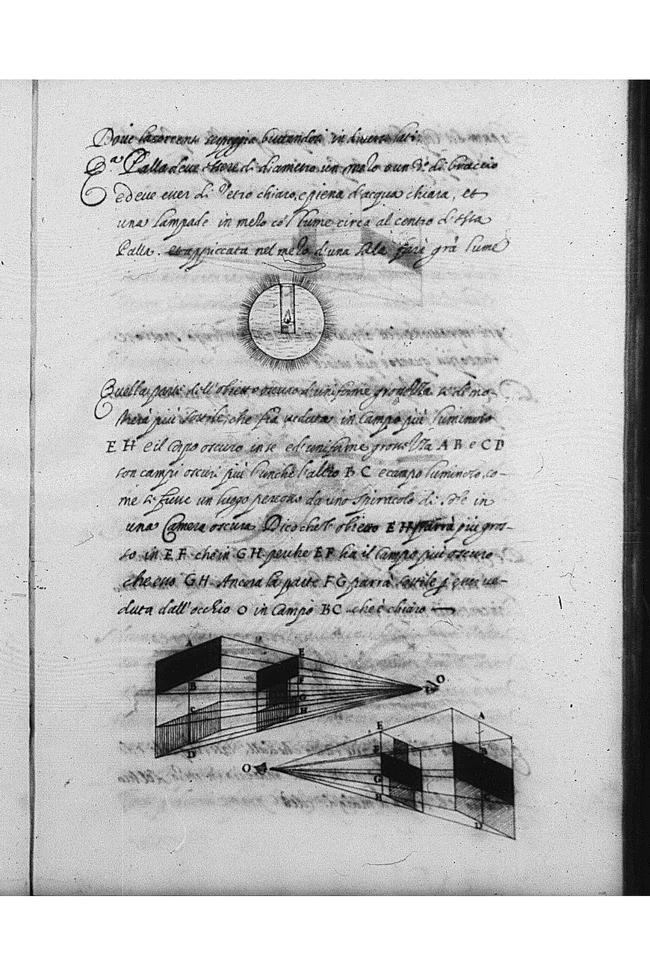 Doue la corrente serpeggia buttandosi in diuersi lati.
Qa Palla deue essere di diametro un mezo o un di braccio
e deue esser di Vetro chiaro, e piena d'acqua chiara, et
una lampade in mezo co'l lume circa al centro d'essa
Palla. et appiccata nel mezo d'una sala farà grã lume
Quella parte dell'obietto oscuro d'uniforme grossezza si di mo-
strerà più sottile, che fia ueduta in campo più luminoso
E H è il corpo oscuro in se ed'uniforme grossezza A B e C D
son campi oscuri più l'un che l'altro B C e campo luminoso, co-
me se fusse un luogo percosso da uno spiracolo di Sole in
una Camera oscura. Dico che l'obietto E H parrà più gros-
so in E F che in G H perche E F ha il Campo più oscuro
che esso G H. Ancora la parte F G parrà sottile p esser ue-
duta dall'occhio O in Campo B C che è chiaro
A
E
F
B
G
C
H
D
O
A
E
F
B
G
H
D
O